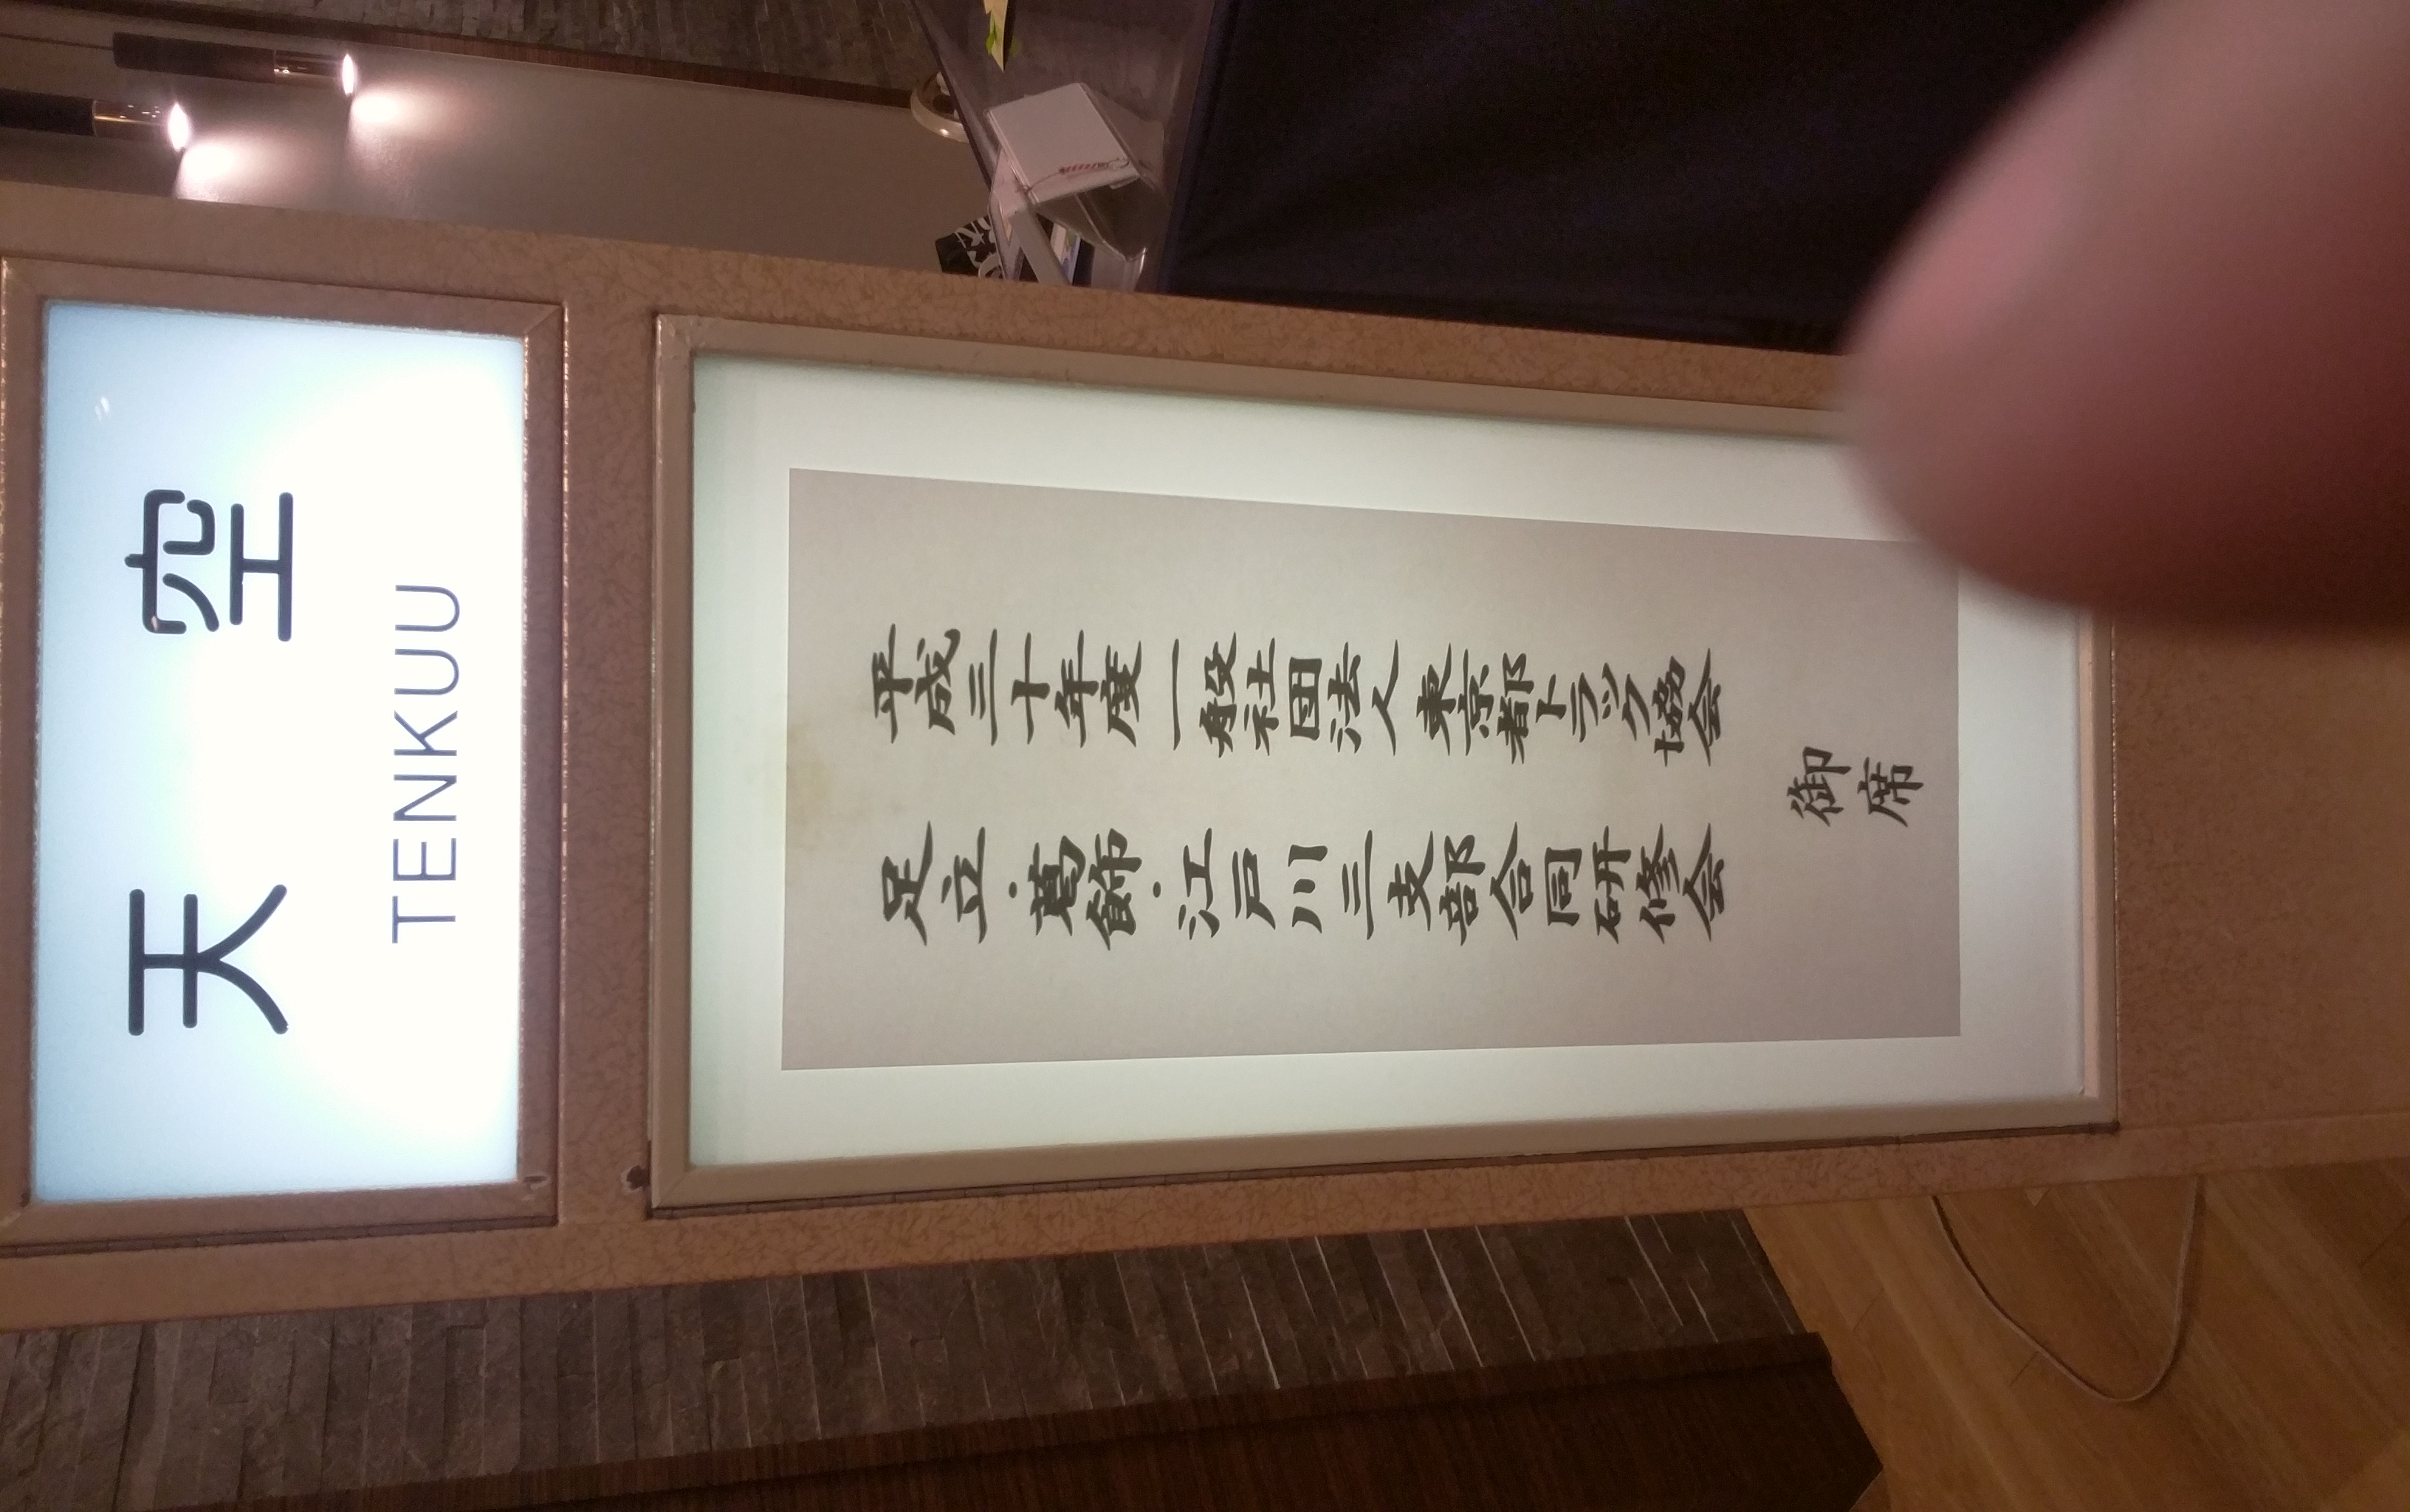 天空
TENKUU
平成三十年度一般社団法人東京都トラック協会
足立・葛飾・江戸川三支部合同研修会
御席